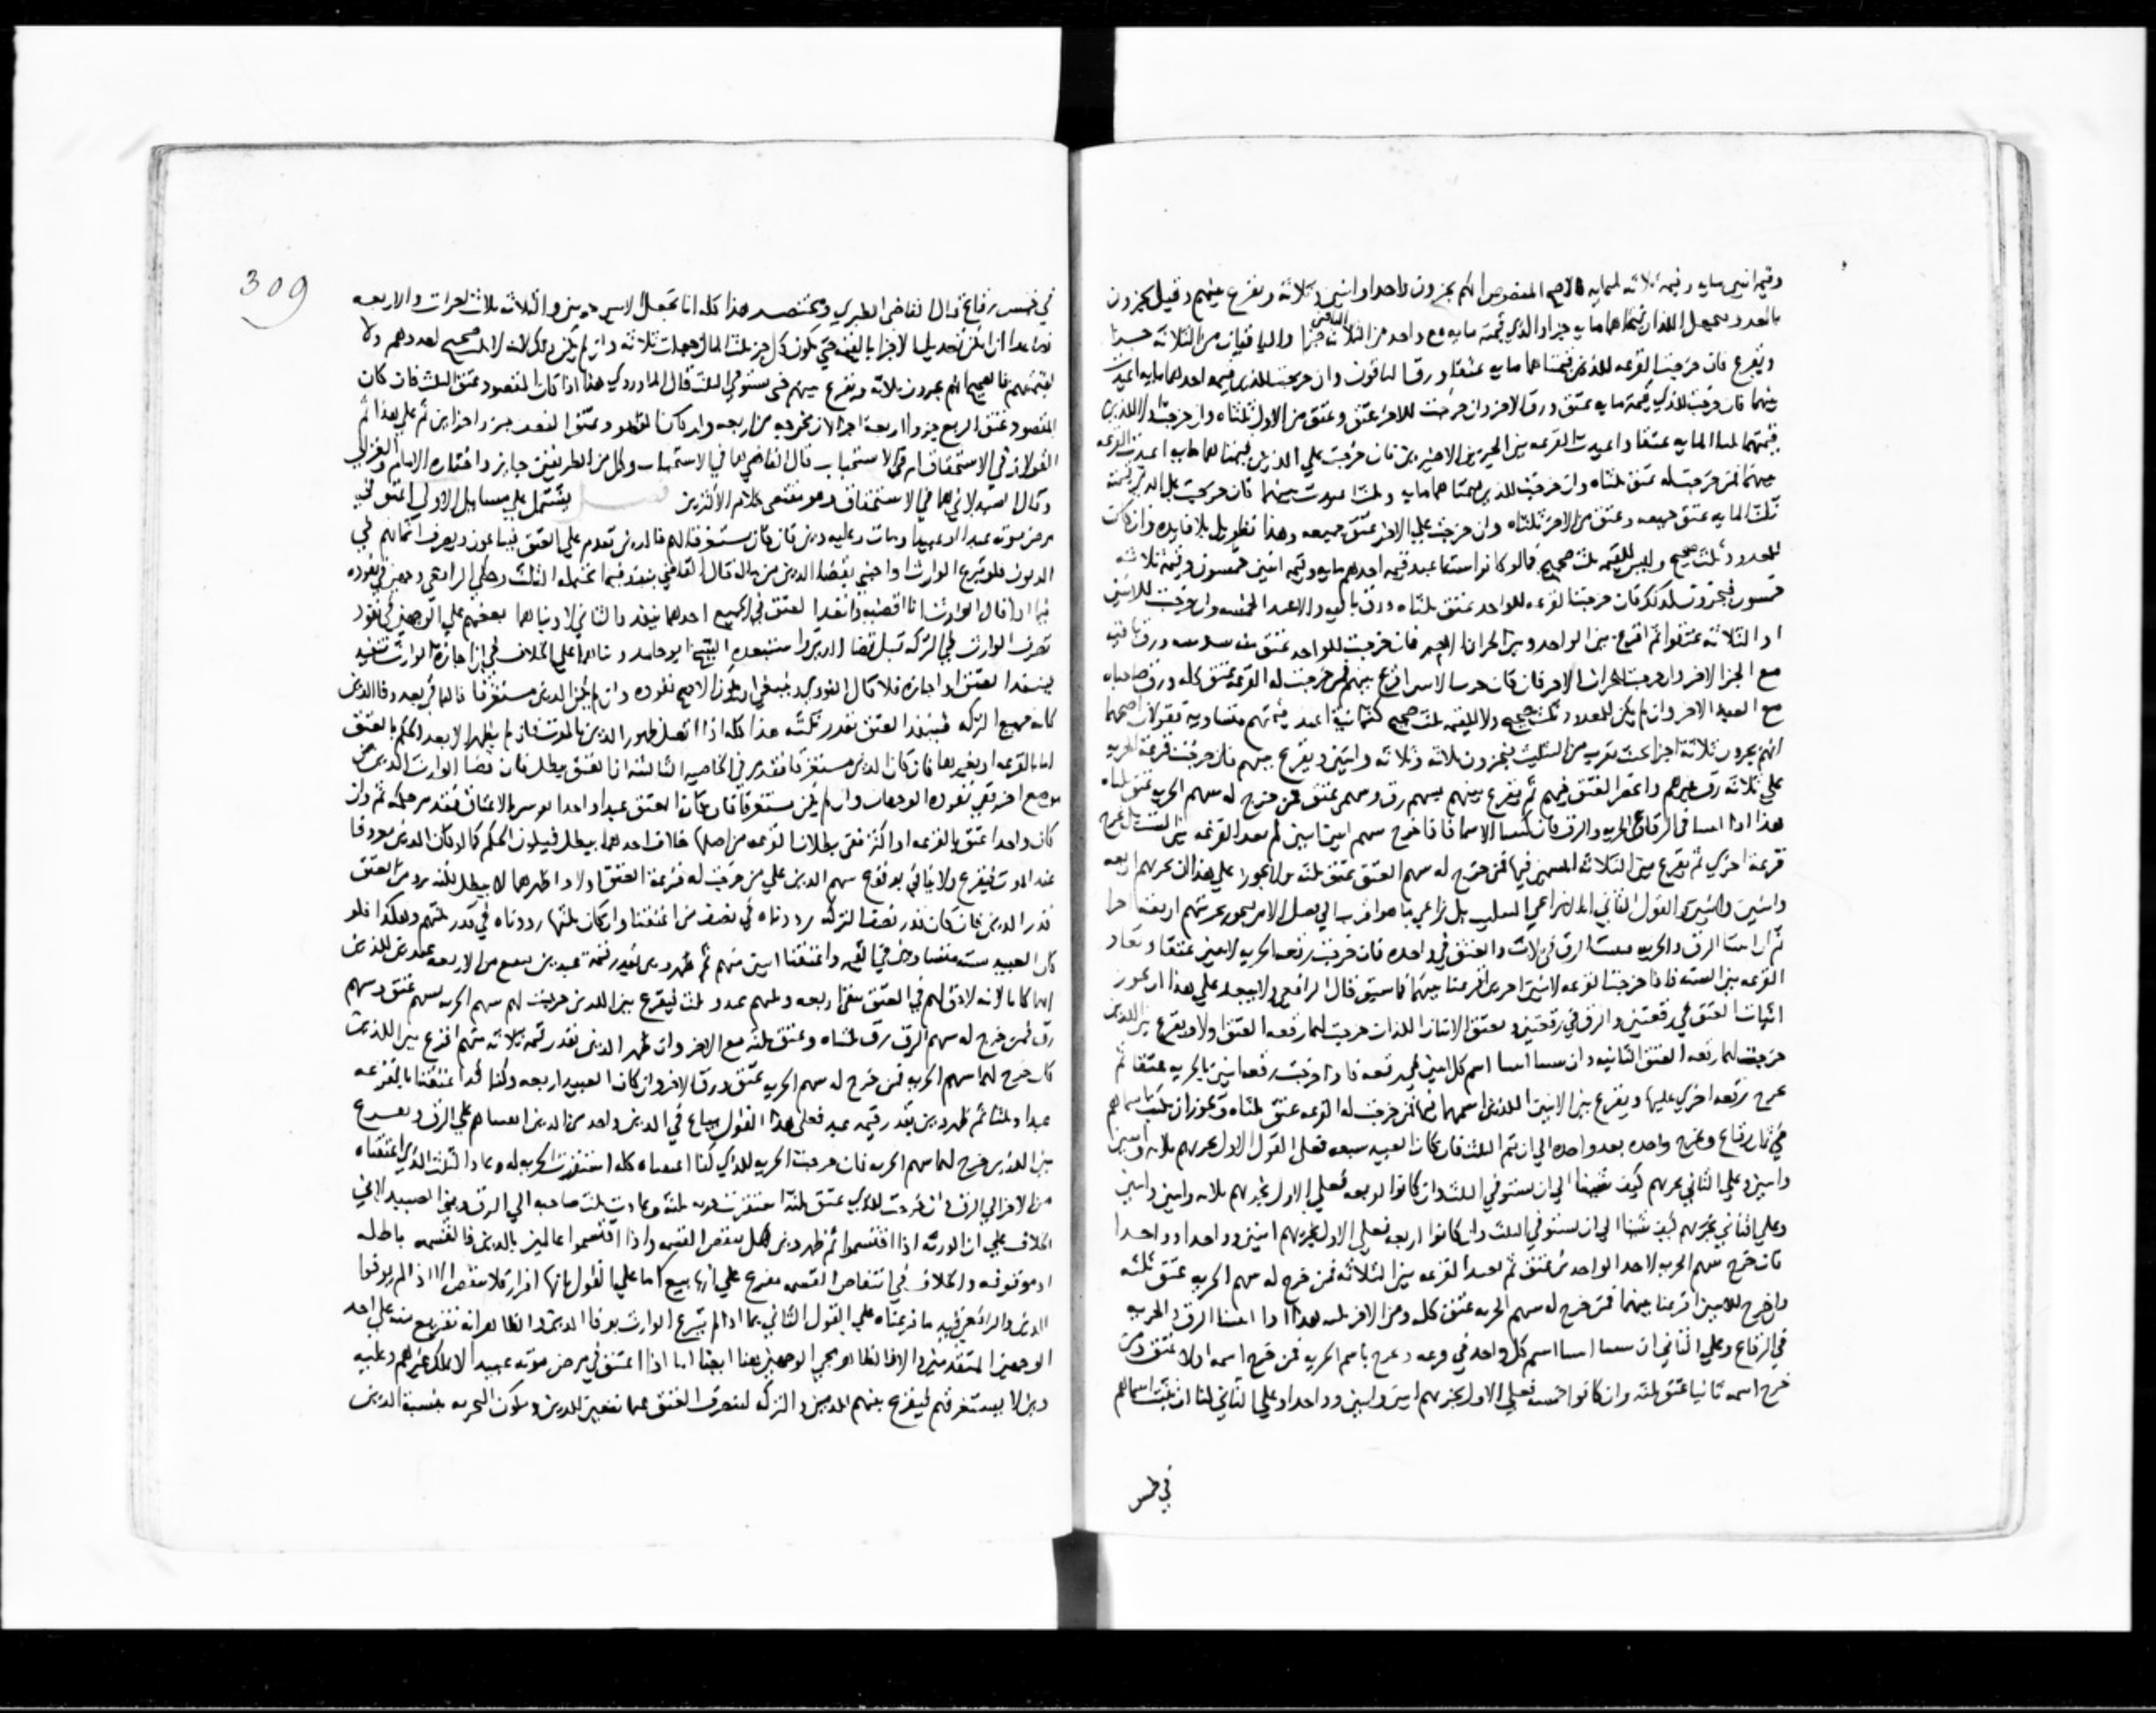 وقيمة اثنين مايه وقيمة ثلاثة لمايه فالاصح المنصوص انهم يجزون واحدا واثنين وثلاثة ويقرع بينهم وقيل يجزون
بالعدد ويجعل اللذان قيمتاهما مايه جزا والذي قيمته مايه مع واحد من الثلاثة جزا والباقيان من الثلاثة جزا
الباقين
ويقرع فان خرجت القرعه للذين قيمتاهما مايه عتقا ورق الباقون وان خرجت للذين قيمه احدهما مايه اعيدت
بينهما فان خرجت للذي قيمته مايه عتق ورق الاخر وان خرجت للاخر عتق وعتق من الاول ثلثاه وان خرجت للذين
قيمتهما ثلثا المايه عتقا واعيدت القرعه بين الجزين الاخيرين فان خرجت علي الذين قيمتاهما مايه اعيدت القرعه
بينهما فمن خرجت له عتق ثلثاه وان خرجت للذين قيمتاهما مايه وثلث اعيدت بينهما فان خرجت علي الذي قيمته
ثلث المايه عتق جميعه وعتق من الاخر ثلثاه وان خرجت علي الاخر عتق جميعه وهذا تطويل بلا فايده وان كان
للعدد ثلث صحيح وليس للقيمه ثلث صحيح قالوا كانوا ستة اعبد قيمه احدهم مايه وقيمه اثنين خمسون وقيمة ثلاثه
خمسون فيجزون كذلك فان خرجت القرعه للواحد عتق ثلثاه ورق باقيه والاعبد الخمسه وان خرجت للاثنين
او الثلاثه عتقوا ثم اقرع بين الواحد وبين الجزء الاخر فان خرجت للواحد عتق منه سدسه ورق باقيه
مع الجزا الاخر وان خرجت للجزء الاخر فان كان خرج الاسر اقرع بينهم فمن خرجت له القرعه عتق كله ورق صاحباه
مع العبد الاخر وان لم يكن للعدد ثلث صحيح ولا للقيمه ثلث صحيح كثمانية اعبد قيمتهم متساوية فقولان اصحهما
انهم يجزون ثلاثة اجزا بحيث تقرب من الثلث فيجزون ثلاثه وثلاثه واثنين ويقرع بينهم فان خرجت قرعة الحريه
علي ثلاثه رق غيرهم وانحصر العتق فيهم ثم يقرع بينهم بسهم رق وسهمي عتق فمن خرج له سهم الحريه عتق
هذا اذا اثبتنا في الرقاع الحريه والرق فان كتبنا الاسما فاذا خرج سهم اثنين اثنين لم تعد القرعه بين الست بل تخرج
قرعة اخري ثم يقرع بين الثلاثه المسمين فيها فمن خرج له سهم العتق عتق ثلثه ولا يجوز علي هذا ان نجزيهم اربعه
واثنين واثنين والقول الثاني انه لا يراعي التثليث بل يراعي ما هو اقرب الي فصل الامر فيجوز تجزيتهم اربعة اجزا
ثم ان اثبتنا الرق والحريه اثبتنا الرق في ثلاث والعتق في واحده فان خرجت رقعه الحريه لاثنين عتقا وتعاد
القرعه بين السته فاذا خرجت القرعه لاثنين اخرين اقرعنا بينهما كما سبق قال الرافعي ولا يبعد علي هذا ان يجوز
اثبات العتق في رقعتين والرق في رقعتين ويعتق الاثنان اللذان خرجت لهما رقعه العتق اولا ويقرع بين اللذين
خرجت لهما رقعه العتق الثانيه وان اثبتنا اسم كل اثنين في رقعه فاذا خرجت رقعه اثنين بالحريه عتقا ثم
تخرج رقعه اخري عليها ويقرع بين الاثنين اللذين اسمهما فيها فمن خرجت له القرعه عتق ثلثاه ويجوز ان يكتب اسماهم
في ثمان رقاع وتخرج واحده بعد واحده الي ان يتم الثلث فان كان العبيد سبعه فعلي القول الاول نجزيهم ثلاثه واثنين
واثنين وعلي الثاني نجزيهم كيف شينا الي ان نستوفي الثلث وان كانوا اربعه فعلي الاول نجزيهم ثلاثه واثنين واثنين
وعلي الثاني نجزيهم كيف شينا الي ان نستوفي الثلث وان كانوا اربعه فعلي الاول نجزيهم اثنين وواحدا وواحدا
فان خرج سهم الحريه لاحد الواحدين عتق ثم تعاد القرعه بين الثلاثه فمن خرج له سهم الحريه عتق ثلثه
وان خرج للاثنين اقرعنا بينهما فمن خرج له سهم الحريه عتق كله ومن الاخر ثلثه هذا اذا اثبتنا الرق والحريه
في الرقاع وعلي الثاني ان اثبتنا اسم كل واحد في رقعه وتخرج باسم الحريه فمن خرج اسمه اولا عتق ومن
خرج اسمه ثانيا عتق ثلثه وان كانوا خمسه فعلي الاول نجزيهم اثنين واثنين وواحدا وعلي الثاني لنا ان نكتب اسماهم
في خمس
309
في خمس رقاع قال القاضي الطبري ويختصر هذا كله انا نجعل الاسين جزين والثلاثه ثلاثة اجزات والاربعه
فصاعدا ان امكن تعديل الاجزا بالقيمة حتي يكون كل جز ثلث المال جعلت ثلاثه وان لم يكن ذلك لانه لا ثلث صحيح لعددهم ولا
لقيمتهم فالصحيح انهم يجزون ثلاثه ويقرع بينهم حتي يستوفي الثلث قال الماوردي هذا اذا كان المقصود عتق الثلث فان كان
المقصود عتق الربع جزوا اربعة اجزا لان مخرجه من اربعه وان كان المقصود عتق النصف جزوا جزاين ثم علي هذا ثم
القولان في الاستحقاق او في الاستحباب قال القاضي هما في الاستحباب وكل من الطريقين جايز واختاره الامام والغزالي
وقال الصيدلاني هما في الاستحقاق وهو مقتضي كلام الاكثرين فصل يشتمل علي مسايل الاولي اعتق في
مرض موته عبدا او عبيدا ومات وعليه دين فان كان مستغرقا للمال فالدين تقدم علي العتق فيباعون ويصرف اثمانهم في
الديون فلو تبرع الوارث او اجنبي بقضا الدين من ماله قال القاضي ينفذ فيما يحتمله الثلث وحكي الرافعي وجهين في نفوذه
فيما اذا قال الوارث انا اقضيه وانفذ العتق في الجميع احدهما ينفذ والثاني لا وبناهما بعضهم علي الوجهين في نفوذ
تصرف الوارث في التركه قبل قضا الدين واستبعده الشيخ ابو حامد وبناهما علي الخلاف في ان اجازة الوارث تنفيذ
فينفذ العتق او اجازه فلا قال النووي وينبغي ان يكون الاصح نفوذه وان لم يكن الدين مستغرقا فالباقي بعد وفا الدين
كانه جميع التركه فينفذ العتق بقدر ثلثه هذا كله اذا اتصل ظهور الدين بالموت فان لم يظهر الا بعد الحكم بالعتق
اما بالقرعه او بغيرها فان كان الدين مستغرقا فقدم في الحاصيه الثالثه ان العتق يبطل فان قضا الوارث الدين من
موضع اخر ففي نفوذه الوجهان وان لم يكن مستغرقا فان كان العتق عبدا واحدا
كان واحدا عتق بالقرعه او اكثر ففي بطلان القرعه من اصلها خلاف احدهما يبطل فيكون الحكم كما لو كان الدين موجودا
عند الموت فيقرع ولا يبالي بوقوع سهم الدين علي من خرجت له قرعة العتق اولا واظهرهما لا يبطل بل نرد من العتق
قدر الدين فان كان قدر نصف التركه رددناه في نصف من اعتقنا وان كان ثلثها رددناه في قدر ثلثهم وهكذا فلو
كان العبيد سته متساوين في القيمه واعتقنا اثنين منهم ثم ظهر دين بقدر قيمة عبدين بيع من الاربعه عبدين للدين
لانه لا حق لهم في العتق يبقي اربعه وثلثهم عبد وثلث فيقرع بين اللذين خرجت لهم سهم الحريه بسهم عتق وسهم
رق فمن خرج له سهم الرق رق ثلثاه وعتق ثلثه مع الاخر وان ظهر الدين بقدر قيمه ثلاثه منهم اقرع بين اللذين
كان خرج لهما سهم الحريه فمن خرج له سهم الحريه عتق ورق الاخر وان كان العبيد اربعه وكنا قد اعتقنا بالقرعه
عبدا وثلثا ثم ظهر دين بقدر قيمه عبد فعلي هذا القول يباع في الدين واحد من الذين ابقيناهم علي الرق ويقرع
بين اللذين خرج لهما سهم الحريه فان خرجت الحريه للذي كنا اعتقناه كله استقرت الحريه له وعاد الثلث الذي اعتقناه
من الاخر الي الرق وان خرجت للذي عتق ثلثه استقرت حريه ثلثه وعادت ثلث صاحبه الي الرق وبني الصيدلاني
الخلاف علي ان الورثه اذا اقتسموا ثم ظهر دين هل تنقض القسمه واذا اقتسموا عالمين بالدين فالقسمه باطله
او موقوفه والخلاف في انتقاض القسمه مفرع علي انها بيع اما علي القول بانها افراز فلا تنقض الا اذا لم يوفوا
الدين والرافعي قيد ما فرعناه علي القول الثاني بما اذا لم يتبرع الوارث بوفا الدين والظاهر انه تفريع منه علي احد
الوجهين المتقدمين والا فالظاهر مجي الوجهين هنا ايضا اما اذا اعتق في مرض موته عبيدا لا يملك غيرهم وعليه
دين لا يستغرقهم فيقرع بينهم للدين والتركه لنصرف العتق عما تعين للدين وتكون التجزيه بنسبة الدين